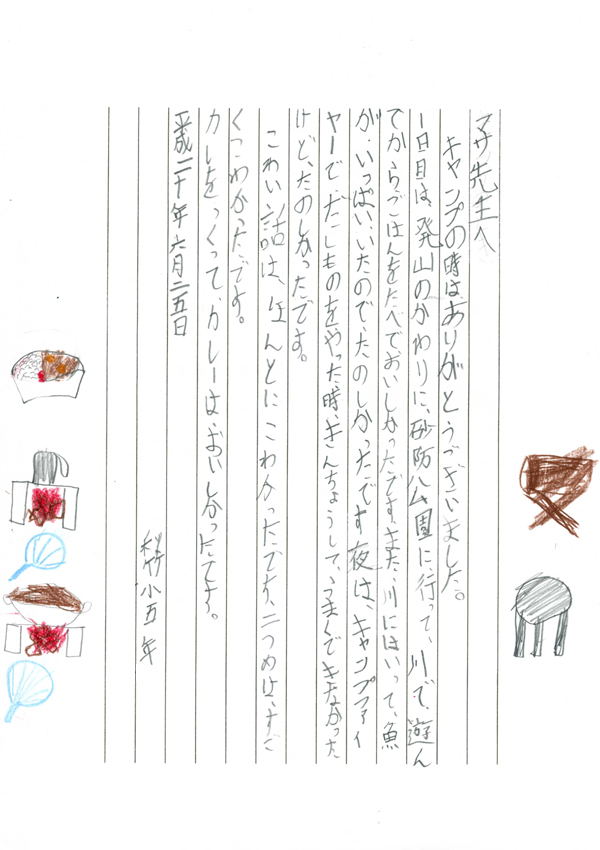 マサ先生へ
キャンプの時はありがとうございました。
一日目は、発山のかわりに、砂防公園に行って、川で、遊ん
でからごはんをたべておいしかったです。また、川にはいって、魚
が、いっぱい、いたので、たのしかったです夜は、キャンプファイ
ヤーで、だしものをやった時、きんちょうして、うまくできなかった
けど、たのしかったです。
こわい話は、ほんとにこわかったです、二つめは、すご
くこわかったです。
カレをつくって、カレーは、おいしかったです。
平成二十年六月二五日
小五年